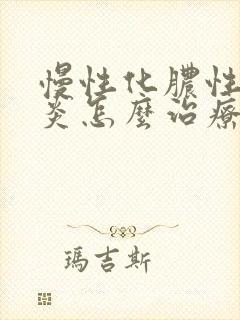 慢性化膿性
炎怎麼治療
瑪吉斯